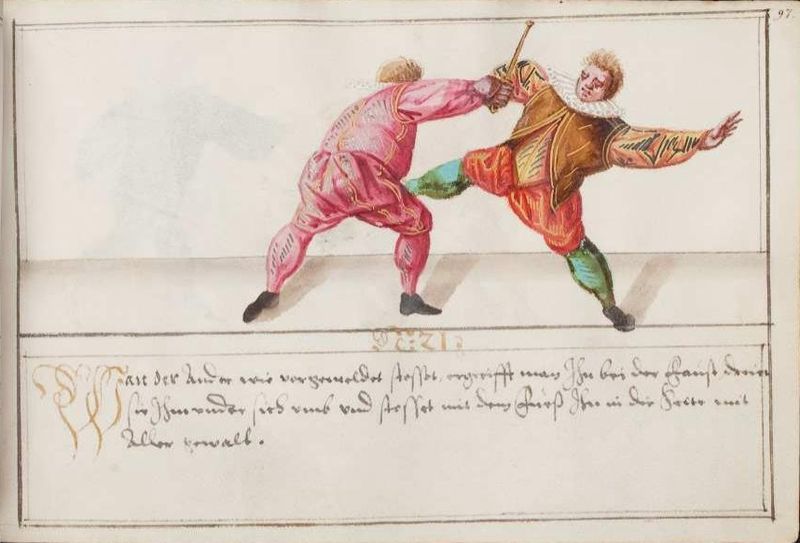 97.
N: 21.
Wan der Ander wie vorgemeldet stosset, ergreifft man Ihn bei der Faust, drent
sie Ihm vnder sich vmb vnd stosset mit dem Fueß Ihn in die Seite mit
Aller gewalt.